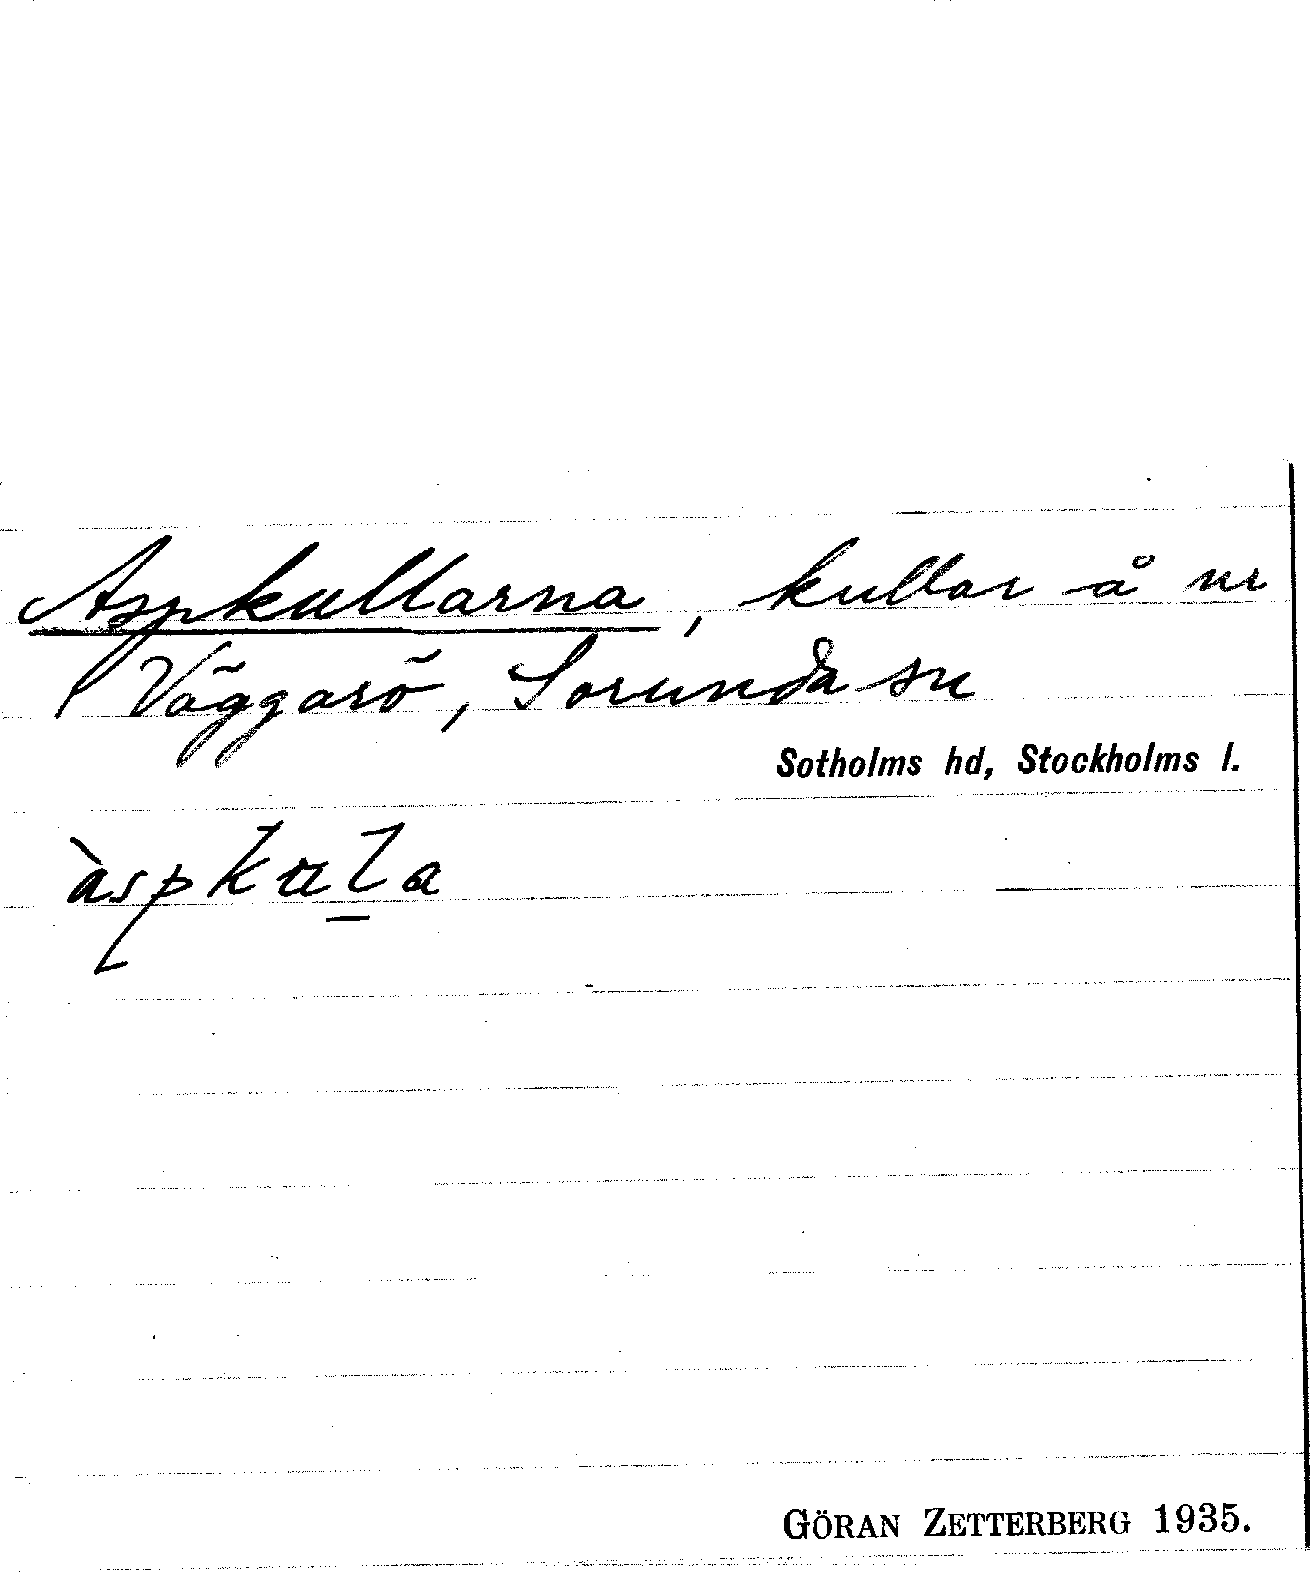 Aspkullarna, kullar å nr
Väggarö, Sorunda sn
Sotholms hd, Stockholms l.
àspkula
GÖRAN ZETTERBERG 1935.